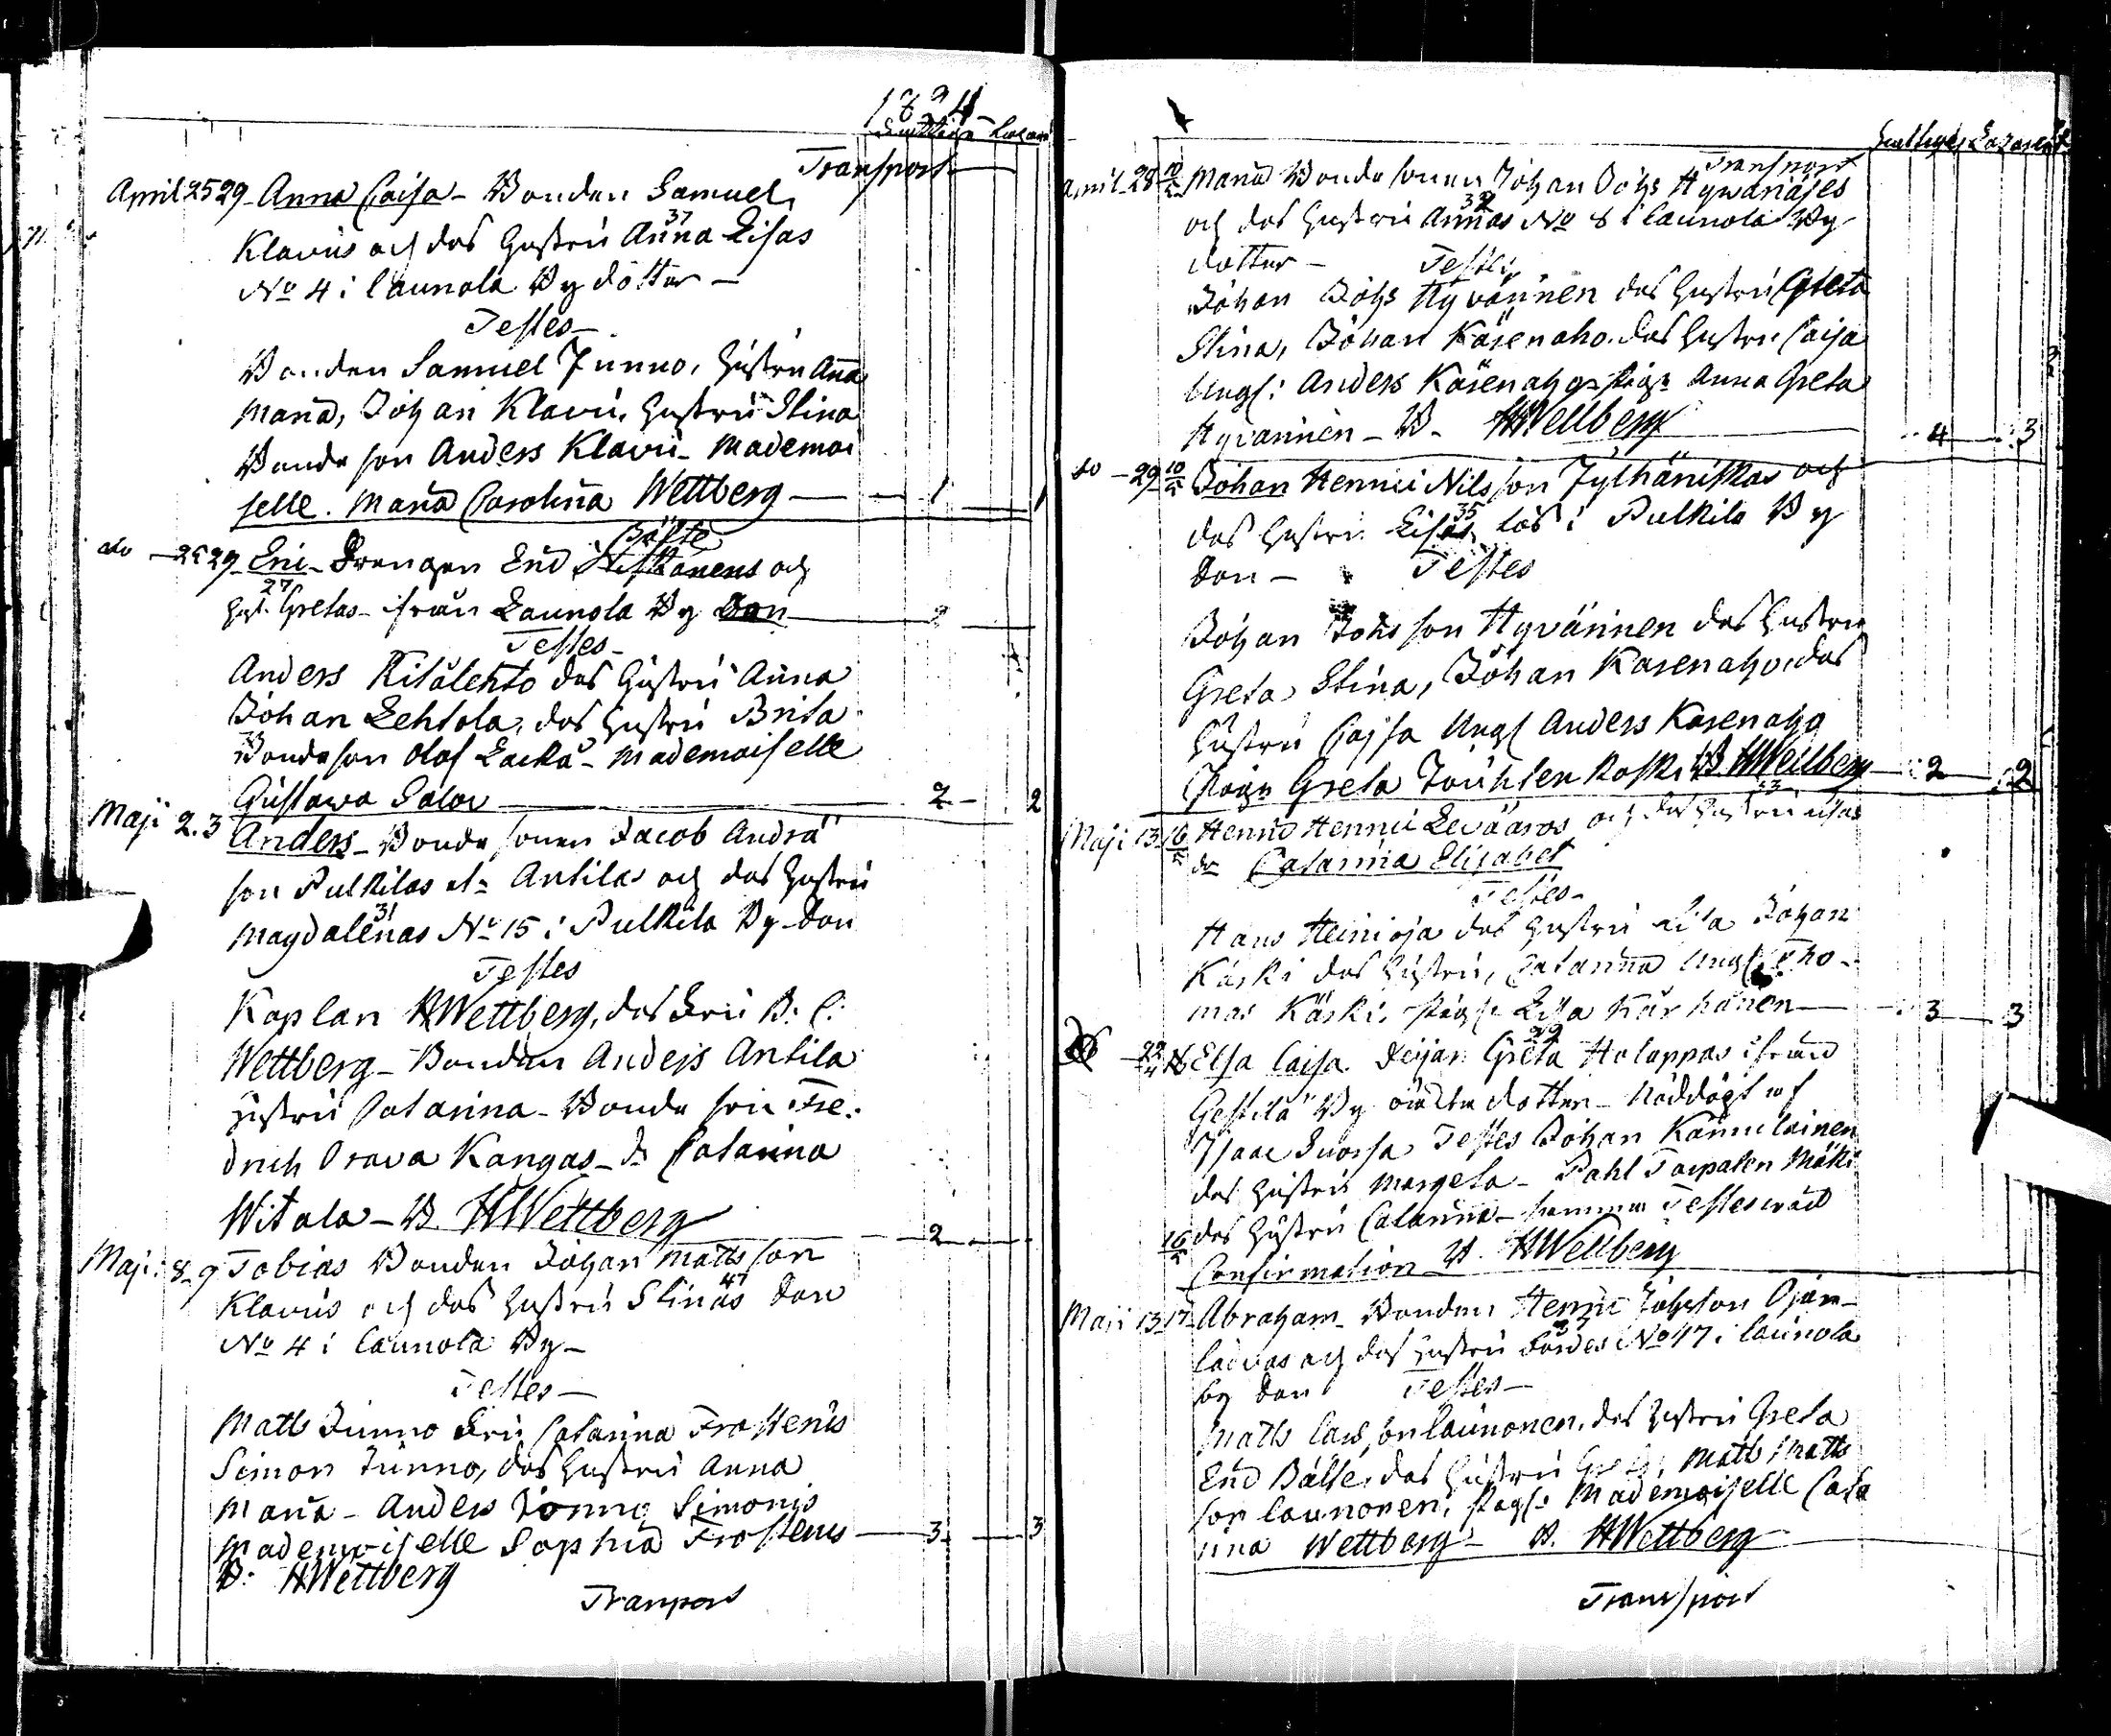 1824
Fattiga Lazaret
Transport
April 25 29 Anna Caisa - Bonden Samuel
Klavus och des Hustru Anna Lisas 37
No 4 i Launola By dotter -
Testes -
Bonden Samuel Junno, Hustru Anna
Maria, Johan Klavu, Hustru Stina
Bonde son Anders Klavu - Mademoi
selle. Maria Carolina Wettberg 1 1
do - 25 29 Eric - Drengen Eric Bälte och
Hust. Gretas 27 - ifrån Launola By Son 2
Testes -
Anders Kitulehto des Hustru Anna
Johan Lehtola, des Hustru Brita
Bondeson Olof Lacka - Mademoiselle
Gustava Salov 2 - 2
Maji 2. 3 Anders - Bonde sonen Jacob Andrä
son Pulkilas el. Antilas och des Hustru
Magdalenas 31 No 15 i Pulkila By Son
Testes
Kaplan HWettberg, des Fru B. C.
Wettberg - Bonden Anders Antila
Hustru Catarina - Bonde son Fre.
drich Orava Kangas - D. Catarina
Witala - B HWettberg 2
Maji 8 - 9 Tobias Bonden Johan Matts son
Klavus och des Hustru Stinas 47 Son
No 4 i Launola By -
Testes -
Matts Junno Fru Catarina Frosterus
Simon Junno, des Hustru Anna
Maria - Anders Junno Simonis
Mademoiselle Sophia Frosterus 3 3
B. HWettberg
Transport
Fattiga Lazaret
Transport
April 28 10/5 Maria Bonde sonen Johan Johs Hyvänäjes
och des Hustru Annas 32 No 8 i Launola By
dotter - Testes
Johan Johs Hyvännen des Hustru Greta
Stina, Johan Käsenaho des Hustru Caisa
Ungk: Anders Käsenaho Pigan Anna Greta
Hyvännen - B. HWettberg 4 3
do - 29 10/5 Johan Henric Nilsson Jylhänikkas och
des Hustru Lisas 35 lös i Pulkila By
Son - Testes
Johan Johsson Hyvännen des Hustru
Greta Stina, Johan Kasenaho, des
Hustru Cajsa Ungk Anders Kasenaho
Pigan Greta Jouhtenkoski B HWettberg 2 2
Maji 13 16/5 Henric Henric Leväaros och des Hustru Lisas
dr Catarina Elisabet
Testes -
Hans Heinioja des Hustru Lisa Johan
Käski des Hustru, Catarina Ungk: Tho-
mas Käski, Pigan Lisa Karhanen 3 3
Elsa Caisa Pigan Greta 29 Holappas ifrån
Gestilä By oäkta dotter - Nöddöpt af
Isaac Suorsa Testes Johan Kämuläinen
des Hustru Margeta - Pahl Taipalen Mäki
des Hustru Catarina - samma Testes wid
16/5 Confirmation B. HWettberg
Maji 13 17 Abraham - Bonden Henric Johsson Ojan-
laivas och des Hustru No 47 i Launola
by Son Testes -
Matts Larsson Launonen, des Hustru Greta
Eric Bälte, des Hustru Matts Matts
son Launonen, Pigan Mademoiselle Cata
rina Wettberg - B. HWettberg
Transport